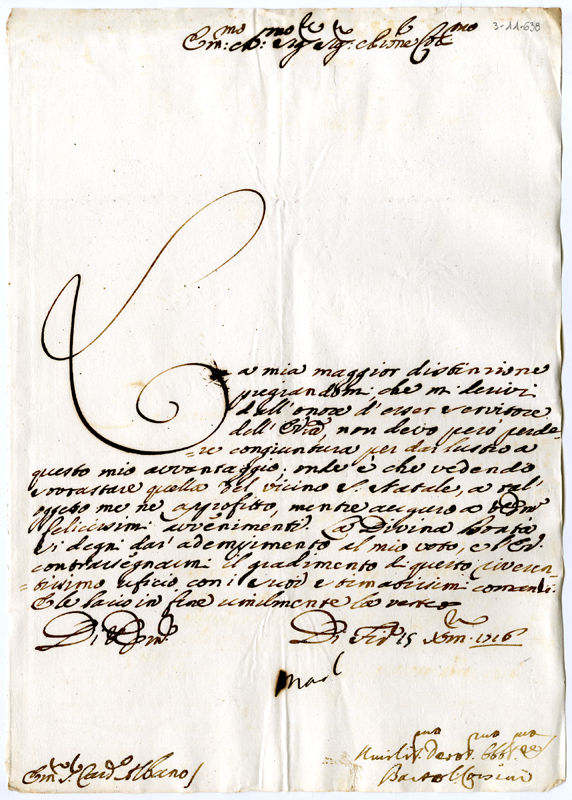 Em:mo e Rev:mo Sig:re Sig:re Pron:e Col:mo
3-11-698
La mia maggior distinzione
pregiandomi, che mi derivi
dall' onore d' esser servitore
dell' E. V.ra, non devo però perde=
=re congiuntura per dar lustro a
questo mio avvantaggio; onde è che vedendo
sovrastare quella del vicino S. Natale, a tal'
effetto me ne approfitto, mentre auguro a V. Em.
felicissimi avvenimenti. La Divina Bontà
si degni dar' adempimento al mio voto, e l' E. V.
contrasegnarmi il gradimento di questo riveren=
=tissimo uficio con i suoi e stimatissimi comandi.
E le bacio in fine umilmente la veste
Di V. Em.
Di 15 Xbre 1716
Em:mo S. Card.e Albano
Umilis.mo Devot.mo Obblig.mo
Bartol. Corsini